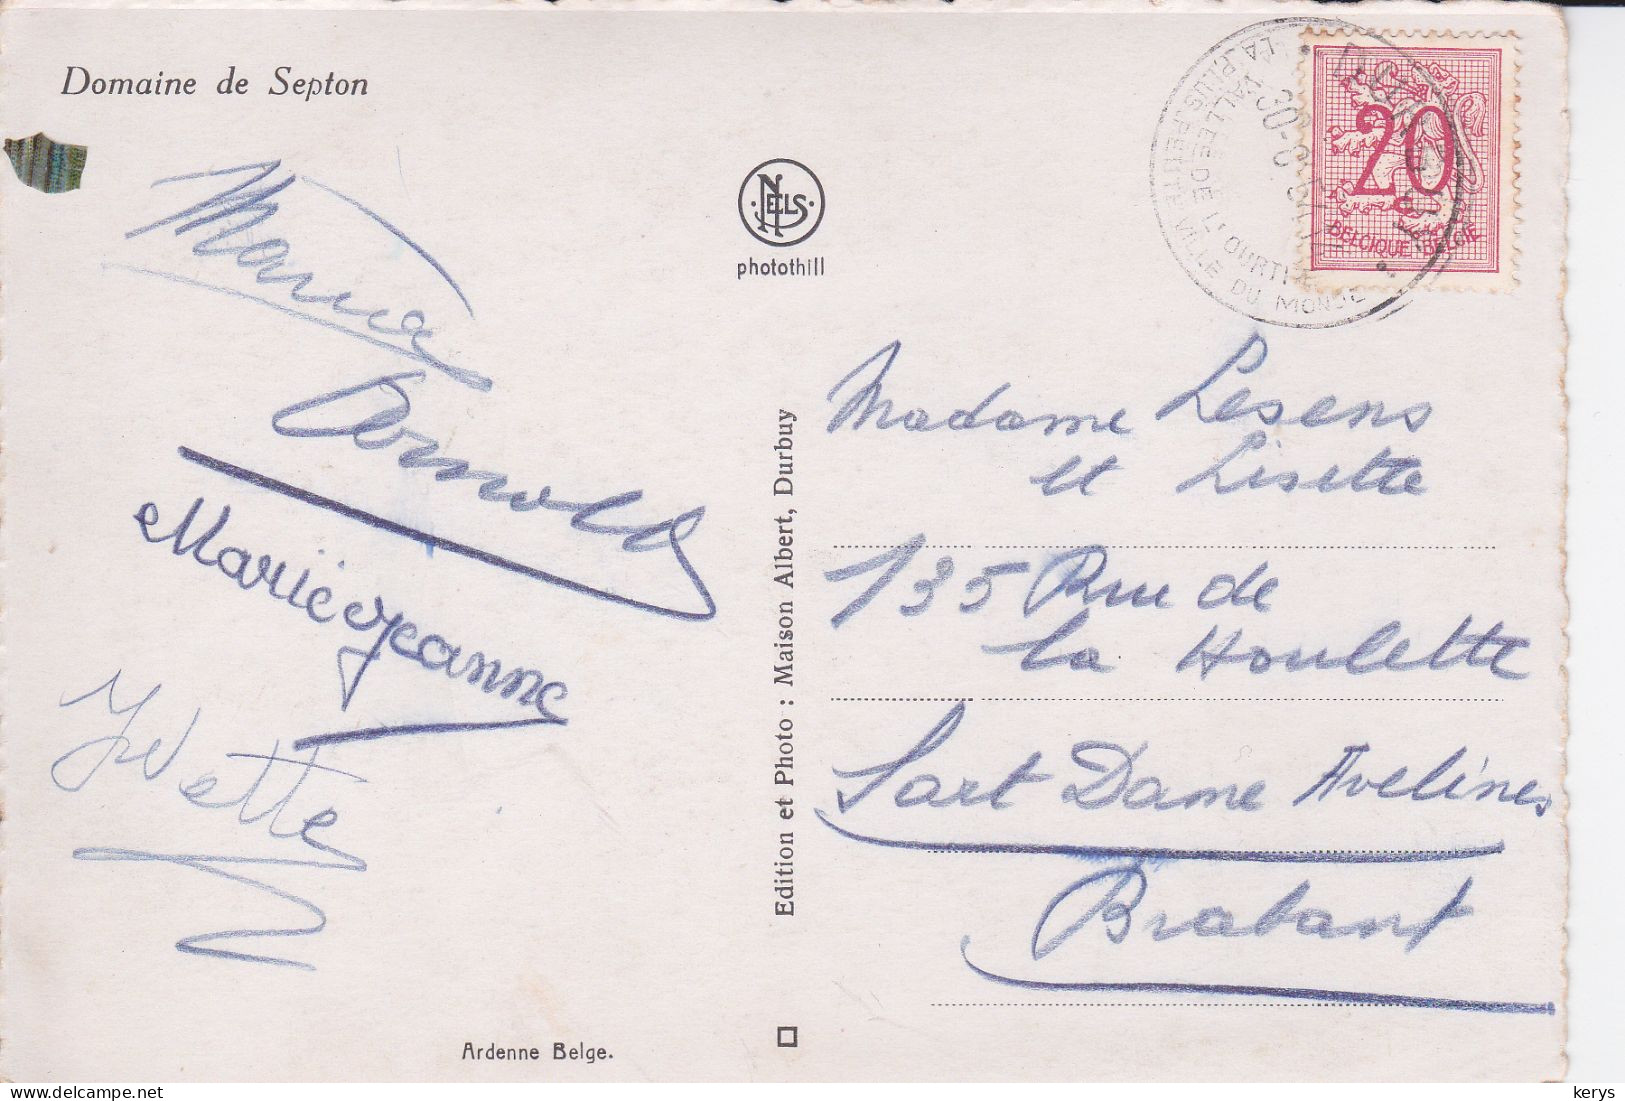 Domaine de Septon
NELS
photothill
DURBUY
LA VALLEE DE L'OURTHE
LA PLUS PETITE VILLE DU MONDE
20
BELGIQUE BELGIE
Maria
Arnold
Marie Jeanne
Yvette
Edition et Photo : Maison Albert, Durbuy
Madame Lesens
et Lisette
135 Rue de
la Houlette
Sart Dame Avelines
Brabant
Ardenne Belge.
kerys